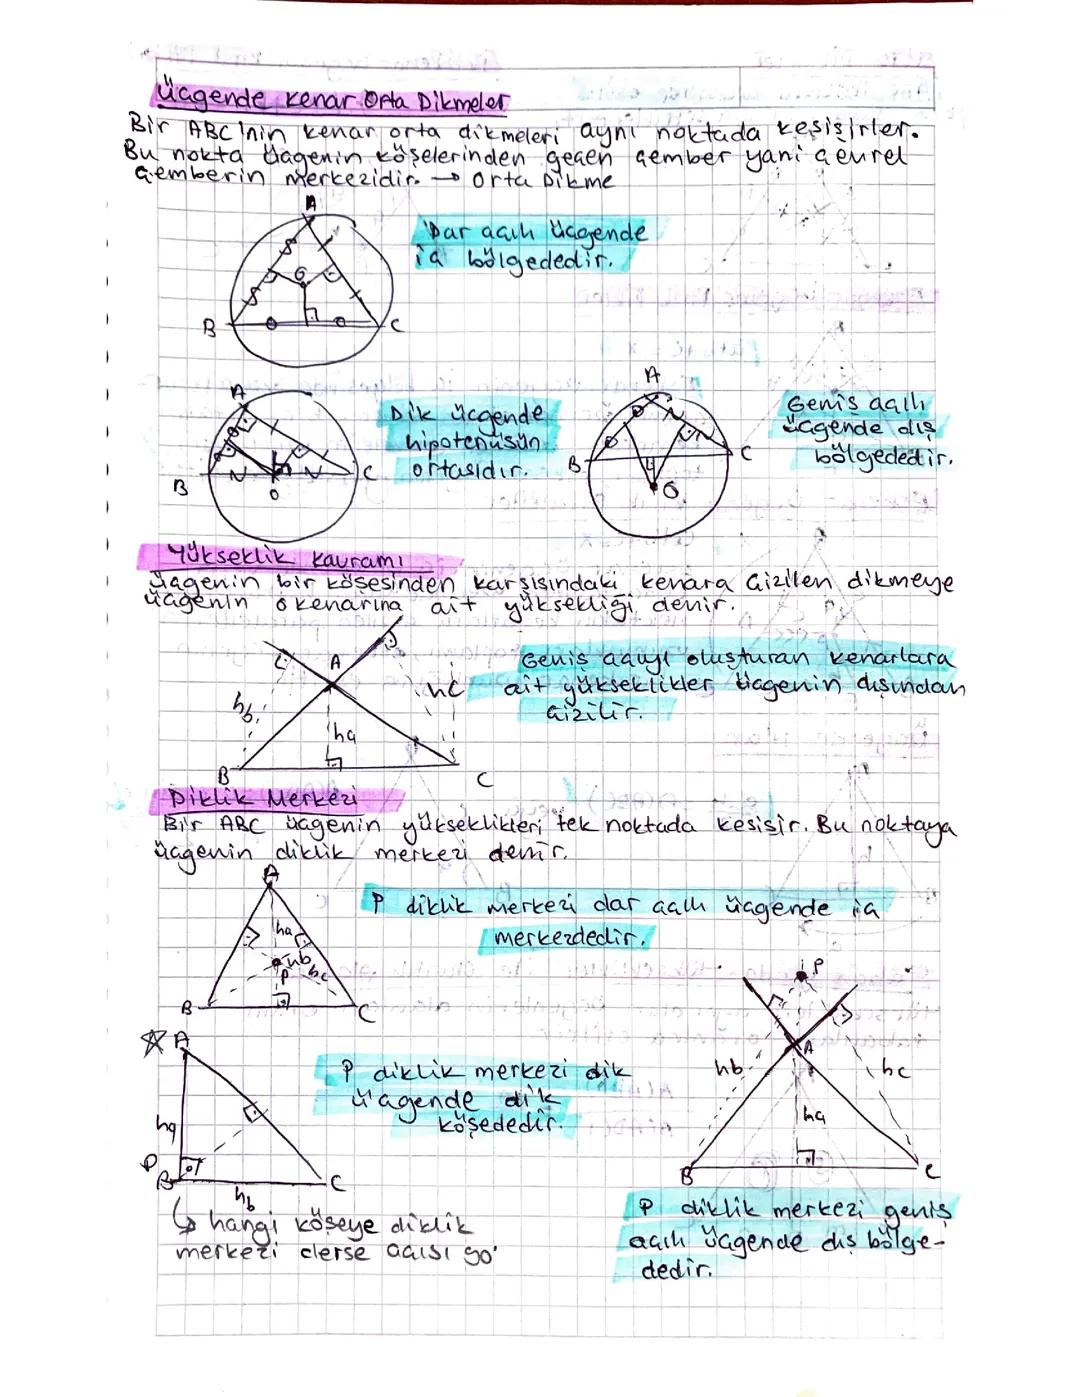 Üçgende Kenar Orta Dikmeler
Bir ABC'nin kenar orta dikmeleri aynı noktada kesişirler.
Bu nokta üçgenin köşelerinden geçen çember yani çevrel
çemberin merkezidir. → Orta Dikme
A
Dar açılı üçgende
iç bölgededir.
G
B
C
A
Dik üçgende
hipotenüsün
ortasıdır.
B
C
O
A
Geniş açılı
üçgende dış
bölgededir.
B
C
O
Yükseklik Kavramı
Üçgenin bir köşesinden karşısındaki kenara çizilen dikmeye
üçgenin o kenarına ait yüksekliği denir.
A
hb
hc
ha
B
C
Geniş açıyı oluşturan kenarlara
ait yükseklikler üçgenin dışından
çizilir.
Diklik Merkezi
Bir ABC üçgenin yükseklikleri tek noktada kesişir. Bu noktaya
üçgenin diklik merkezi denir.
A
ha
hb
P
hc
B
C
P diklik merkezi dar açılı üçgende iç
merkezdedir.
A
ha
P
B
hb
C
P diklik merkezi dik
üçgende dik
köşededir.
↳ hangi köşeye diklik
merkezi derse açısı 90°
P
A
hb
hc
ha
B
C
P diklik merkezi geniş
açılı üçgende dış bölge-
dedir.